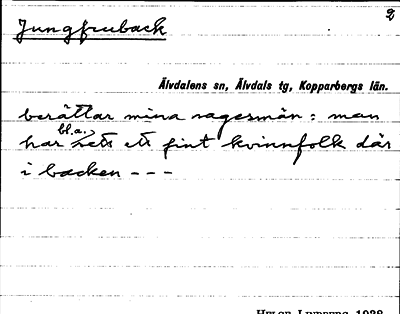 2
Jungfruback
Älvdalens sn, Älvdals tg, Kopparbergs län.
berättar mina sagesmän: man
har bl.a. sett ett fint kvinnfolk där
i backen - - -